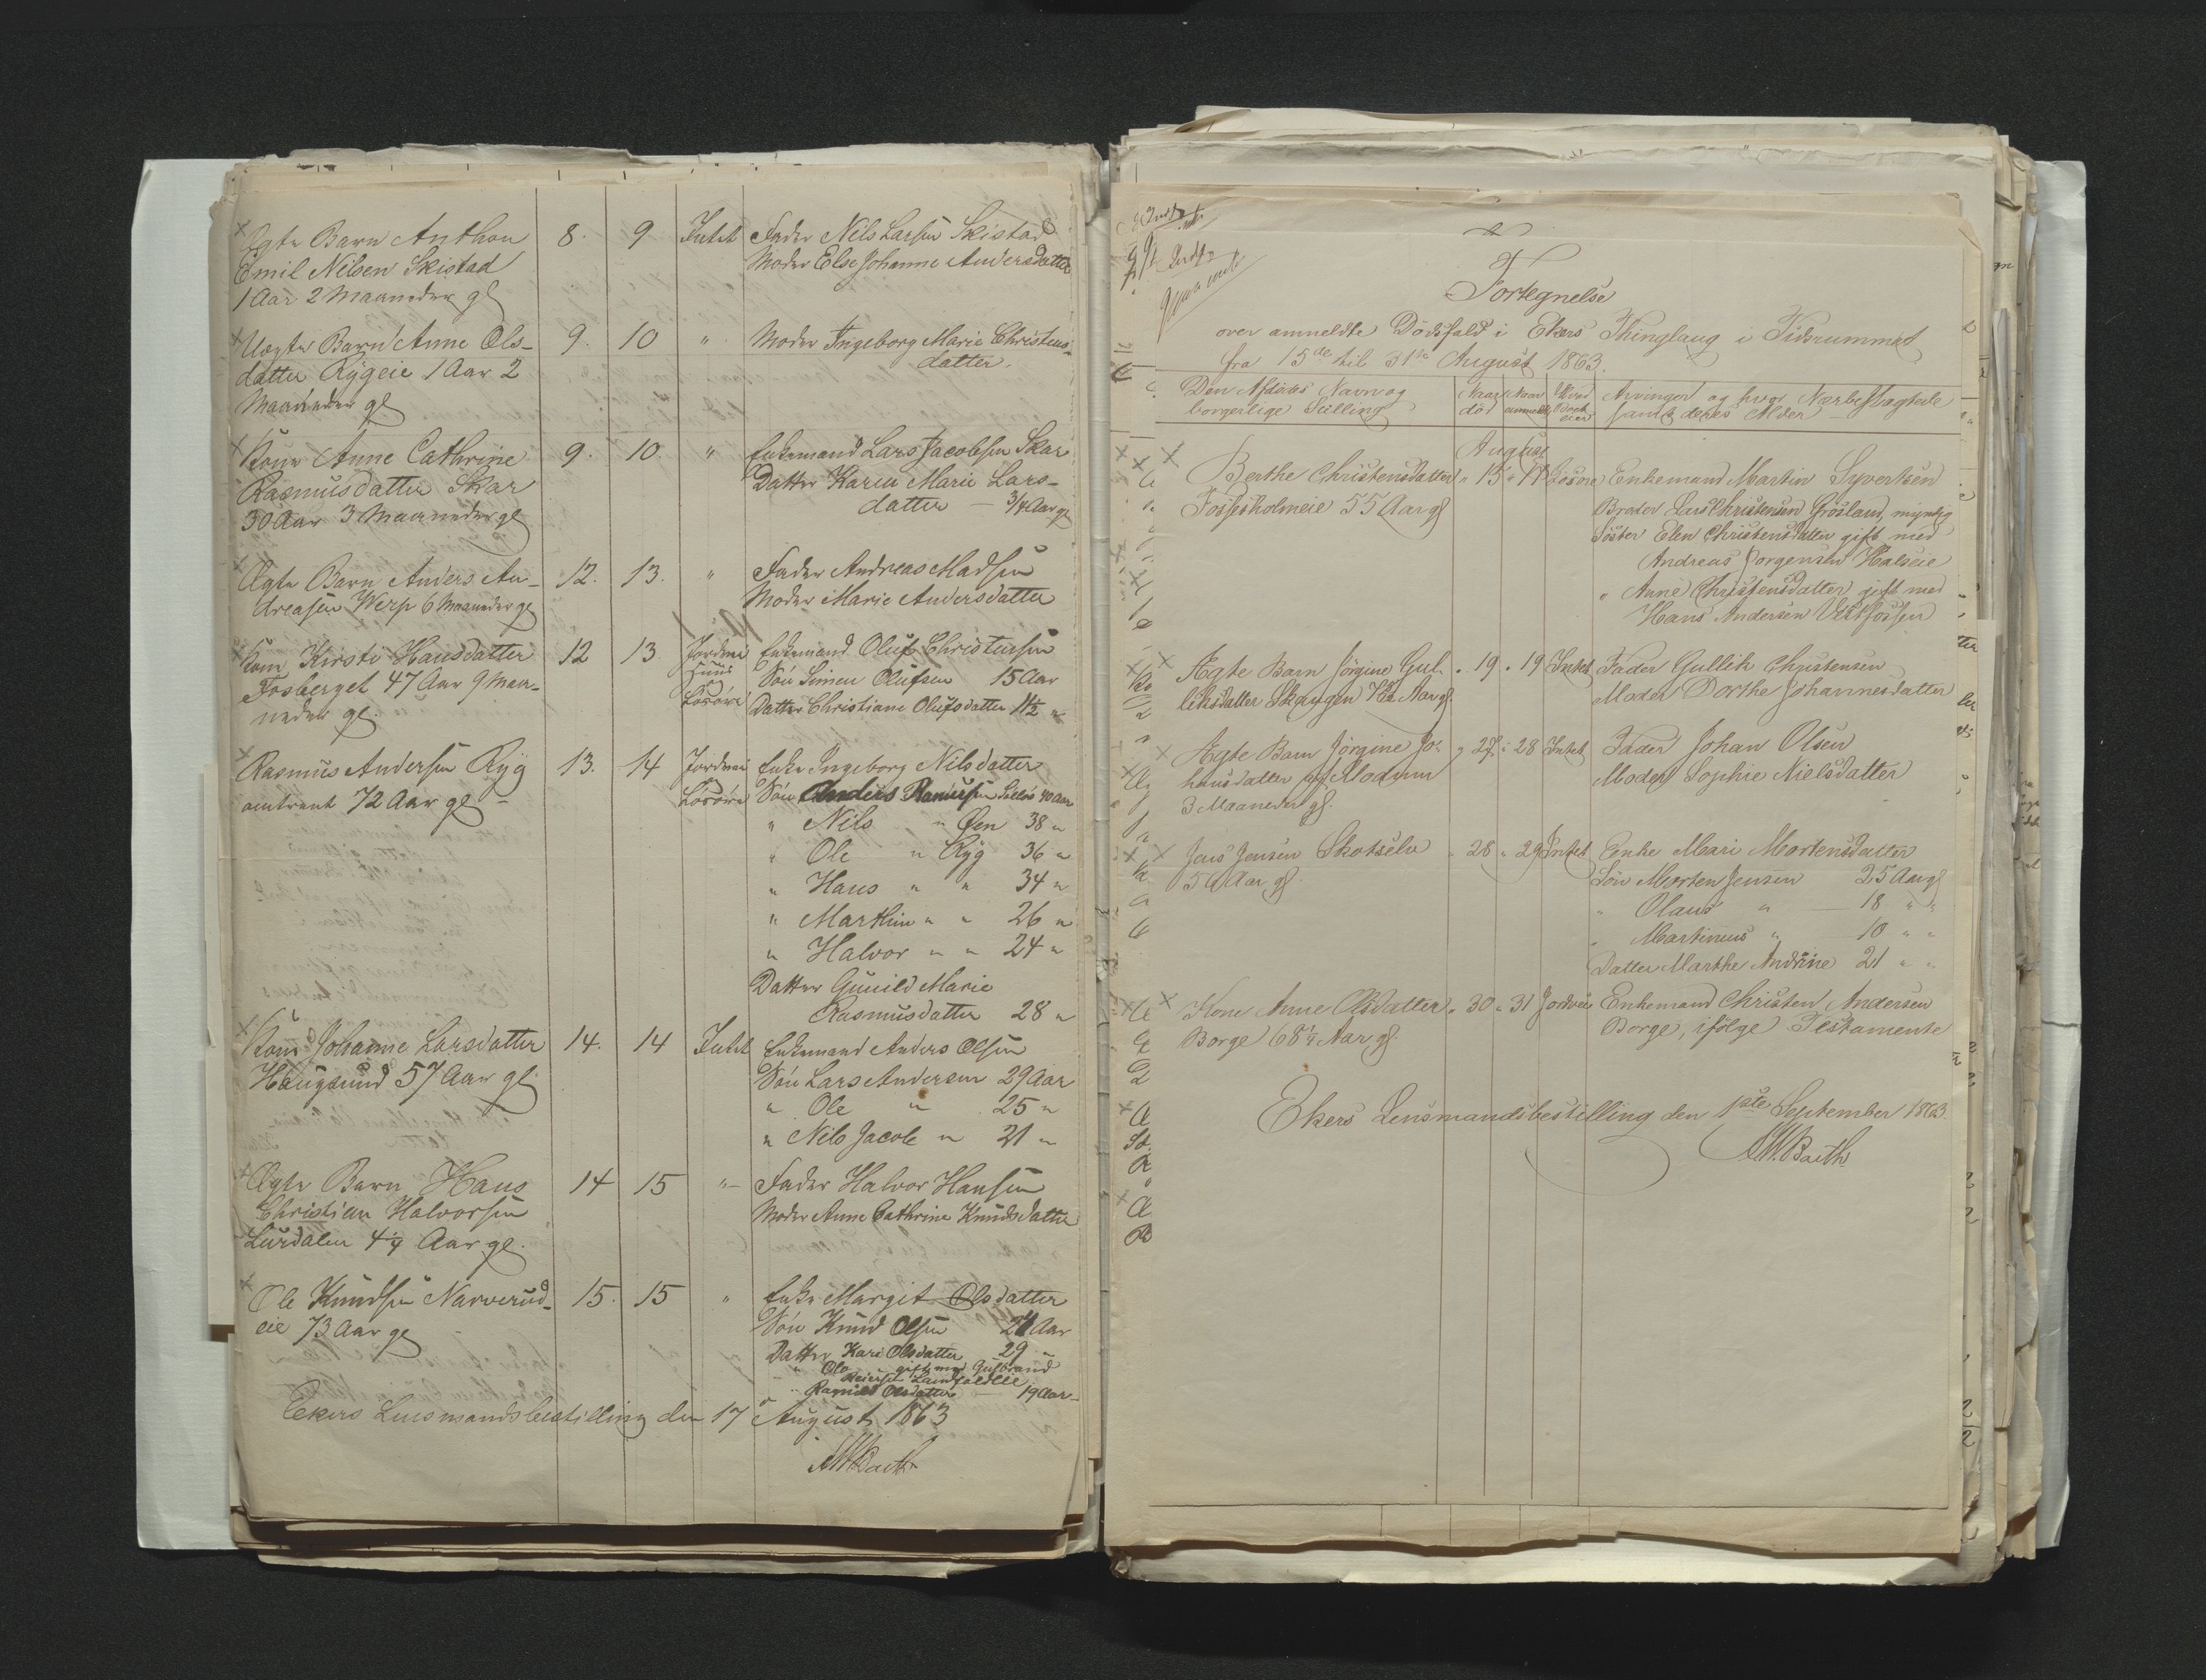 Ægte Barn Anthon 8. 9 Intet Fader Nils Larsen Skistad
Emil Nilsen Skistad Moder Else Johanne Andersdatter
1 Aar 2 Maaneder gl
Uægte Barn Anne Ols- 9. 10 " Moder Ingeborg Marie Christens-
datter Rygeie 1 Aar 2 datter.
Maaneder gl
Kone Anne Cathrine 9. 10. " Enkemand Lars Jacobsen Skar
Rasmusdatter Skar Datter Karen Marie Lars-
30 Aar 3 Maaneder gl datter — 3/4 Aar gl
Ægte Barn Anders An- 12. 13. " Fader Andreas Madsen
dreasen Werp 6 Maaneder gl Moder Marie Andersdatter
Kone Kirsti Hansdatter 12 13. Jordvei Enkemand Oluf Christensen
Fosberget 47 Aar 9 Maa- Huus og Søn Simen Olufsen 15 Aar
neder gl. Løsøre Datter Christiane Olufsdatter 11½ "
Rasmus Andersen Ryg 13. 14 Jordvei Enke Ingeborg Nilsdatter
omtrent 72 Aar gl - Løsøre Søn Anders Rasmussen 40 Aar
" Nils " Øen 38 "
" Ole " Ryg 36 "
" Hans " " 34 "
" Marthin " " 26 "
" Halvor " " 24 "
Datter Gunild Marie
Rasmusdatter 28 "
Kone Johanne Larsdatter 14. 14 Intet Enkemand Anders Olsen
Haugsund 57 Aar gl. Søn Lars Andersen 29 Aar
" Ole " 25 "
" Nils Jacob " 21 "
Ægte Barn Hans 14 15 " Fader Halvor Hansen
Christian Halvorsen Moder Anne Cathrine Knudsdatter
Lurdalen 4¼ Aar gl.
Ole Knudsen Narverud- 15. 15 " Enke Margit Olsdatter
eie 73 Aar gl Søn Knud Olsen Aar
Datter Kari Olsdatter 29 "
" gift med Gulbrand
" Olsdatter — 19 Aar -
Ekers Lensmandsbestilling den 17 August 1863
Fortegnelse
over anmeldte Dødsfald i Ekers Thinglaug i Tidsrummet
fra 15de til 31te August 1863.
Den Afdødes Navn og Naar Naar Hvad Arvinger og hvor Nærbeslægtede
borgerlige Stilling død anmeldt Boet eier samt deres Alder
August
Berthe Christensdatter " 15 " 17 Løsøre Enkemand Martin Syvertsen
Fossesholmeie 55 Aar gl Broder Lars Christensen Grøsland, myndig
Søster Elen Christensdatter gift med
Andreas Jørgensen Halseie
" Anne Christensdatter gift med
Hans Andersen Vestfossen
Ægte Barn Jørgine Gul- " 19 " 19 Intet Fader Gullik Christensen
liksdatter Skaugen Aar gl. Moder Dorthe Johannesdatter
Ægte Barn Jørgine Jo- " 27 " 28 Intet Fader Johan Olsen
hansdatter af Modum Moder Sophie Nielsdatter
3 Maaneder gl.
Jens Jensen Skotselv " 28 " 29 Intet Enke Mari Mortensdatter
Aar gl. Søn Morten Jensen 25 Aar gl
" Olaus " — 18 " "
" Martinius " 10 " "
Datter Marthe Andrine 21 " "
Kone Anne Olsdatter " 30 " 31 Jordvei Enkemand Christen Andersen
Borge 68¼ Aar gl. Borge, ifølge Testamente
Ekers Lensmandsbestilling den 1ste September 1863.